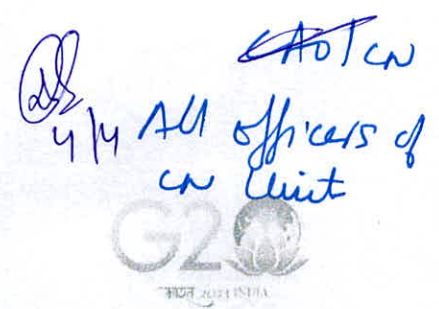 CAO/CN
4/4 All officers of
CN Unit
G20
भारत 2023 INDIA